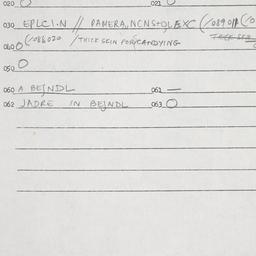 020 O 021 O
030 EPLCIN // PAMERA, NCNSTOLEX (1089011
040 O (1088020 / THICK SKIN FOR CANDYING
050 O
060 A BEJNDL 061 —
062 JADRE IN BEJNDL 063 O